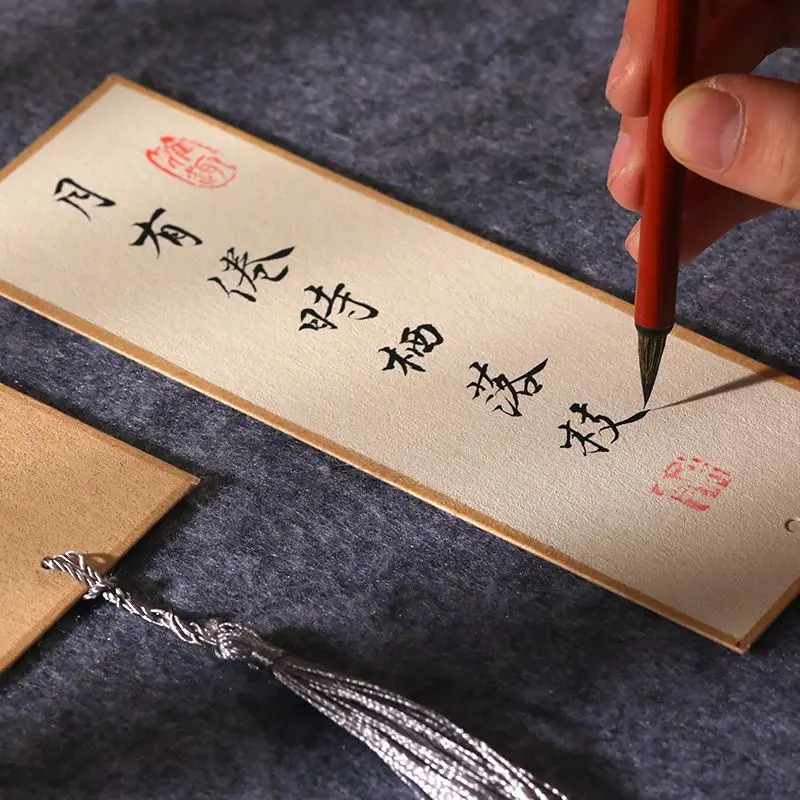 月有倦時栖落枝